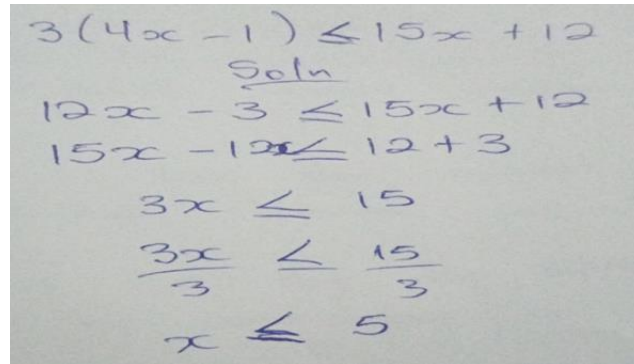 3(4x - 1) ≤ 15x + 12
Soln
12x - 3 ≤ 15x + 12
15x - 12x ≤ 12 + 3
3x ≤ 15
3x/3 ≤ 15/3
x ≤ 5